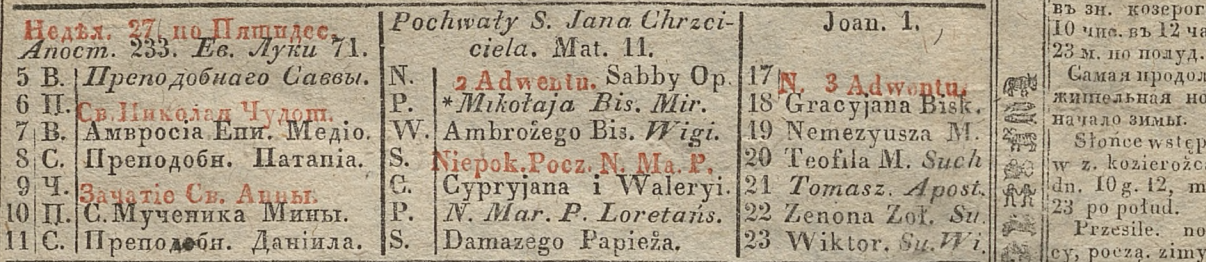 Недѣл. 27 по Пятидес.
Апост. 233. Ев. Луки 71.
5 В. Преподобнаго Саввы.
6 П. Св. Николая Чудот.
7 В. Амвросія Епи. Медіо.
8 С. Преподобн. Патапія.
9 Ч. Зачатіе Св. Анны.
10 П. С. Мученика Мины.
11 С. Преподобн. Даніила.
Pochwały S. Jana Chrzci-
ciela. Mat. 11.
N. 2 Adwentu. Sabby Op.
P. *Mikołaja Bis. Mir.
W. Ambrożego Bis. Wigi.
S. Niepok. Pocz. N. Ma. P.
C. Cypryjana i Waleryi.
P. N. Mar. P. Loretańs.
S. Damazego Papieża.
Joan. 1.
17 N. 3 Adwentu.
18 Gracyjana Bisk.
19 Nemezyusza M.
20 Teofila M. Such
21 Tomasz. Apost.
22 Zenona Żoł. Su.
23 Wiktor. Su. Wi.
въ зн. козерог
10 чис. въ 12 ча
23 м. по полуд.
Самая продол
жительная но
начало зимы.
Słońce wstęp
w z. kozierożc
dn. 10 g. 12, m
23 po połud.
Przesile. no
cy, począ. zimy